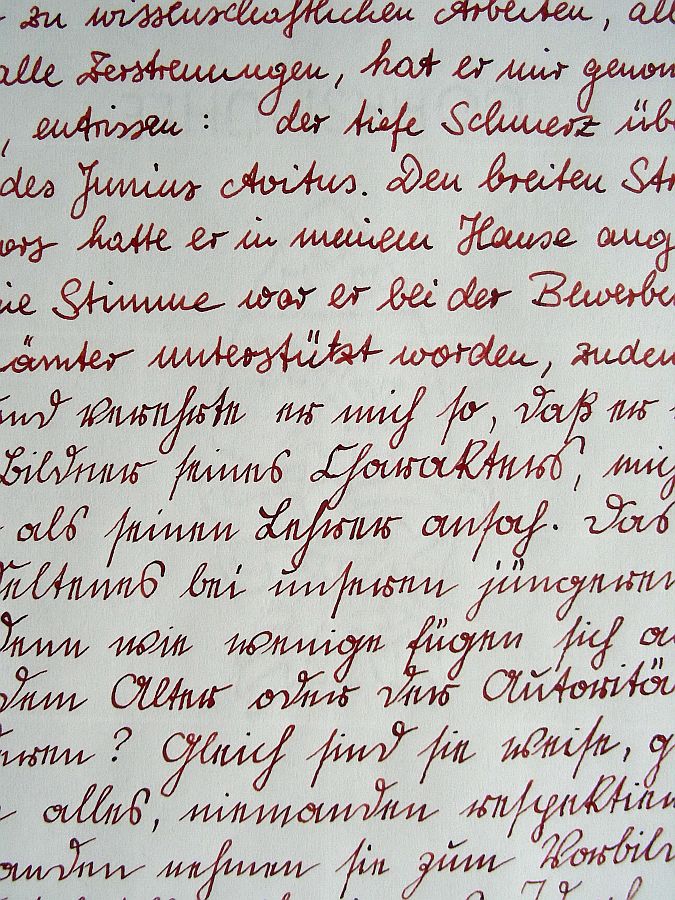 zu wissenschaftlichen Arbeiten, all
alle Zerstreuungen, hat er mir genom
, entrissen: der tiefe Schmerz übe
des Junius Avitus. Den breiten Str
ors hatte er in meinem Hause ang
ne Stimme war er bei der Bewerbe
ämter unterstützt worden, zudem
und verehrte er mich so, daß er
Bildner seines Charakters, mi
als seinen Lehrer ansah. Das
Seltenes bei unseren jüngeren
Denn wie wenige fügen sich a
dem Alter oder der Autoritä
eren? Gleich sind sie weise, g
alles, niemanden respektier
anden nehmen sie zum Vorbil